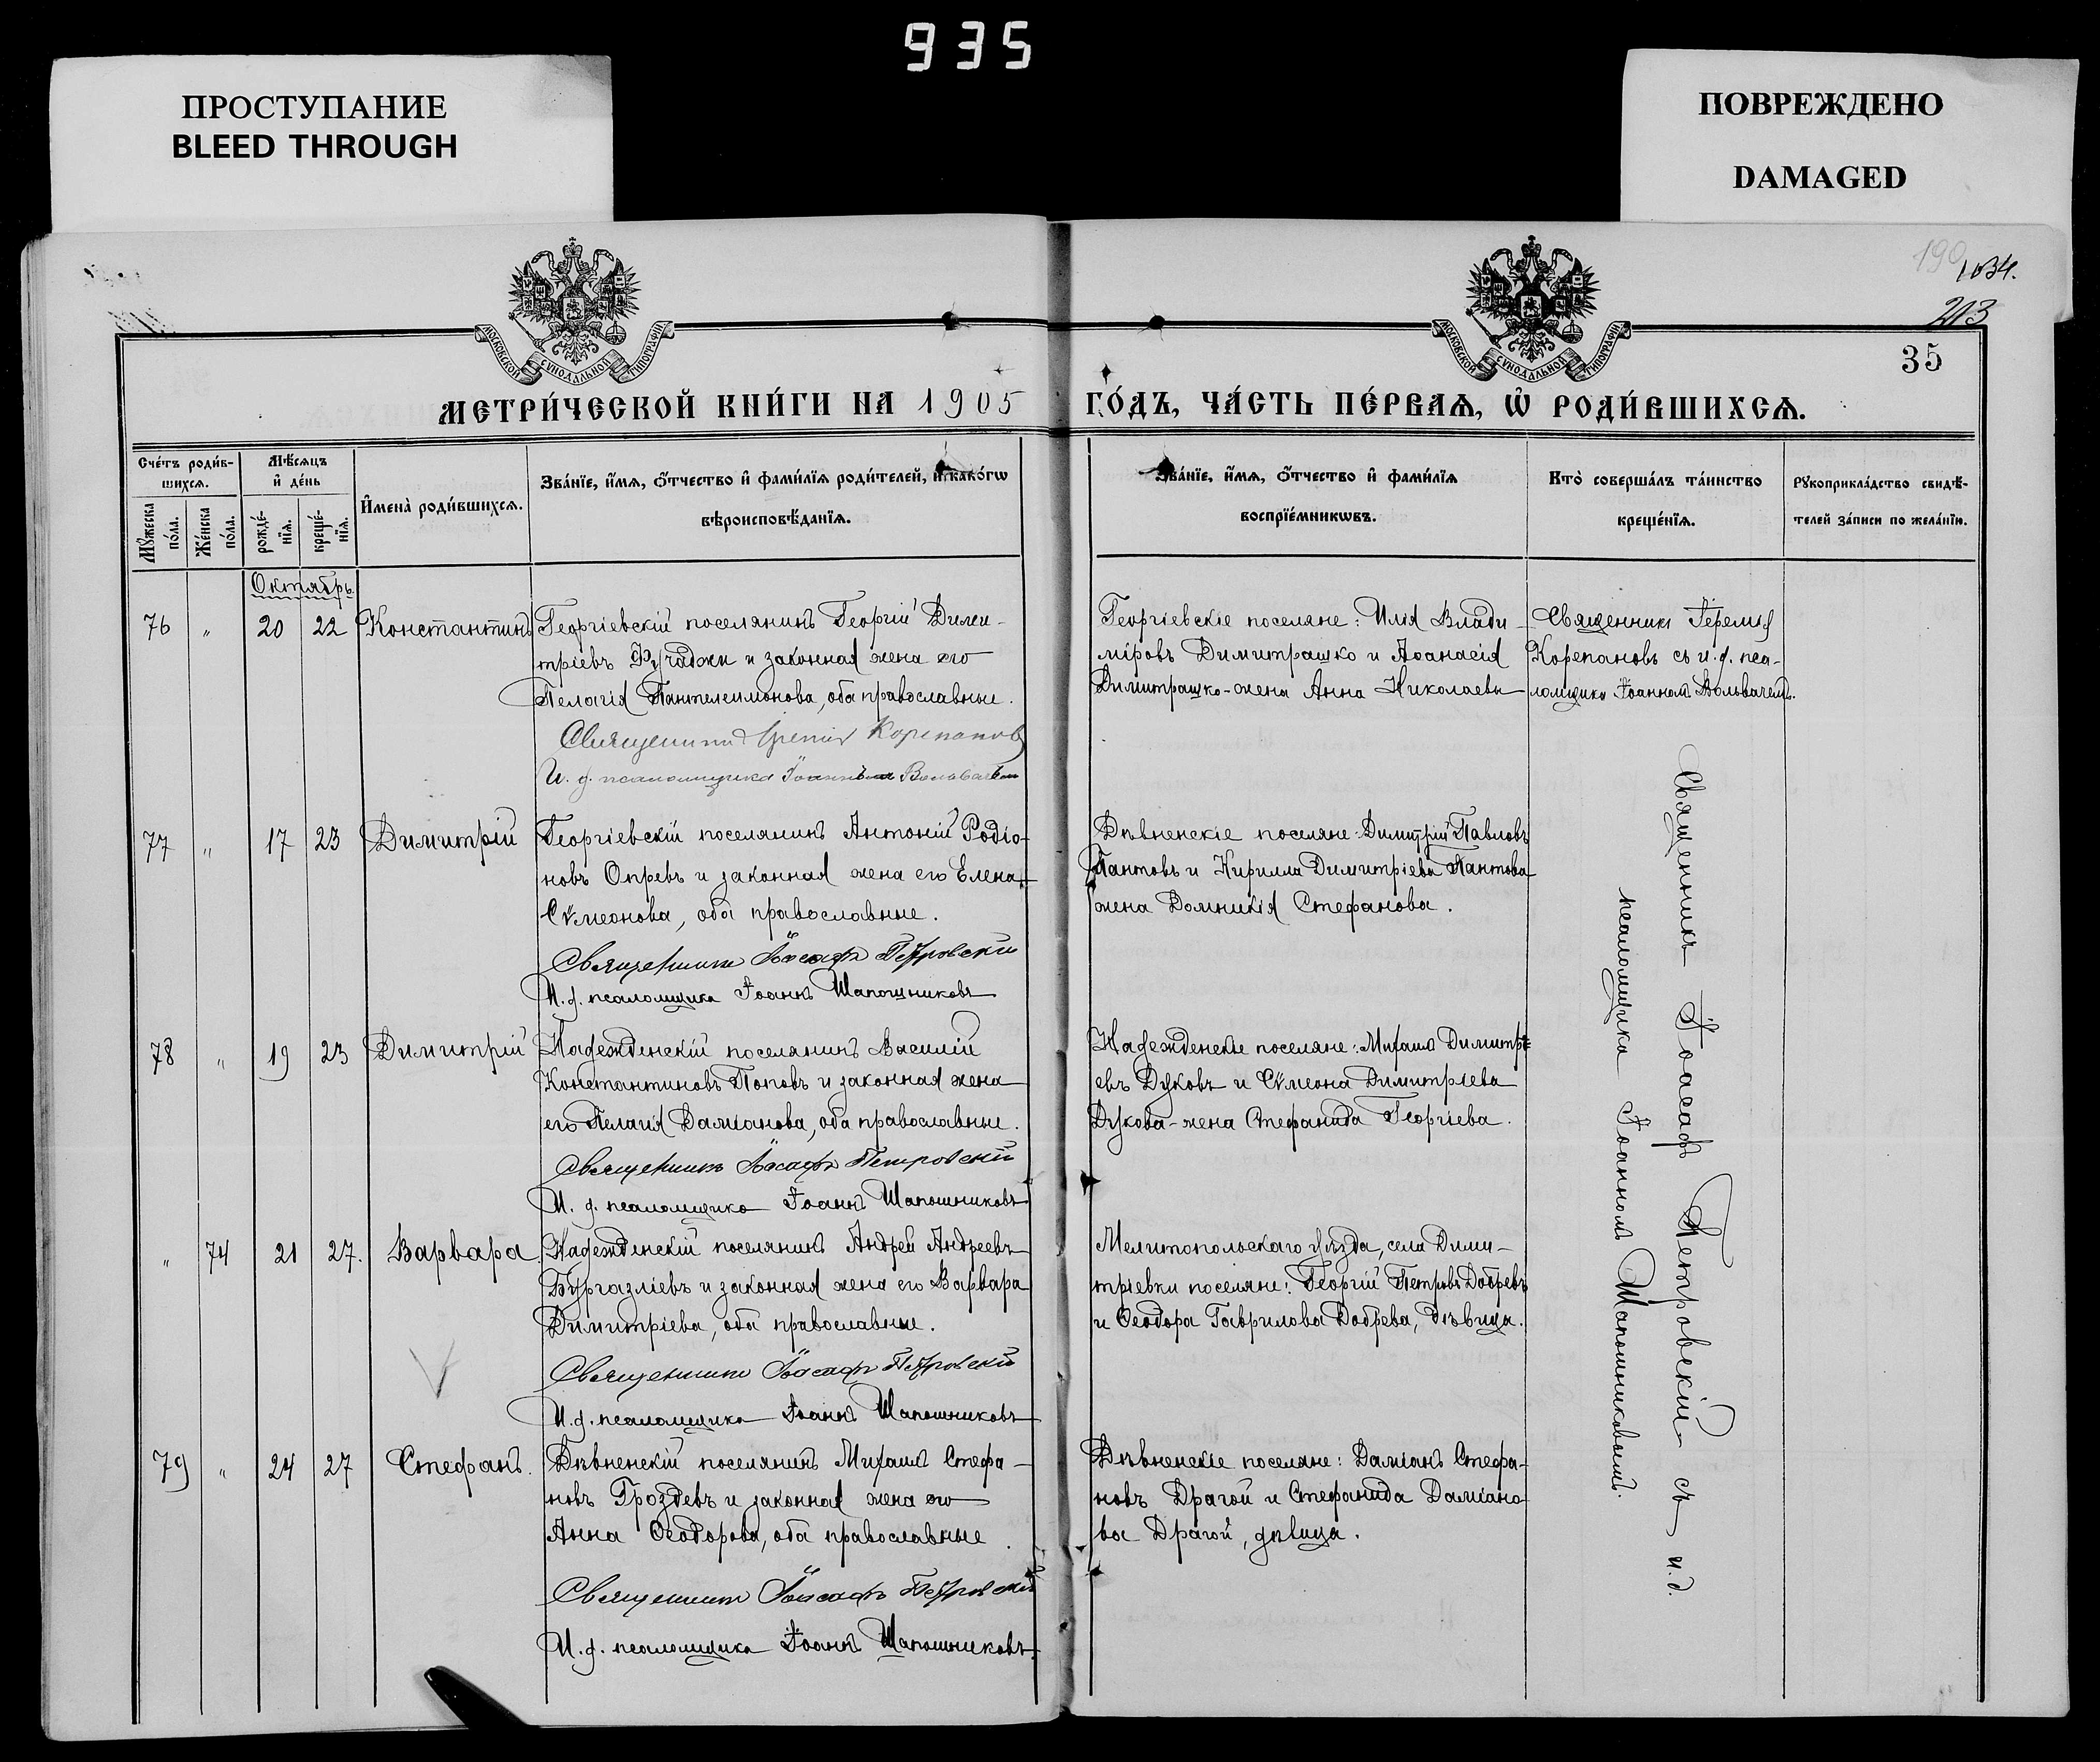 935
ПРОСТУПАНИЕ
BLEED THROUGH
ПОВРЕЖДЕНО
DAMAGED
190
1034.
213
35
МОСКОВСКОЙ СѴНОДАЛЬНОЙ ТИПОГРАФІИ
МОСКОВСКОЙ СѴНОДАЛЬНОЙ ТИПОГРАФІИ
МЕТРИ́ЧЕСКОЙ КНИ́ГИ НА 1905 ГО́ДЪ, ЧА́СТЬ ПЕ́РВАѦ, Ѡ҆ РОДИ́ВШИХСѦ.
Сче́тъ роди́в-
шихсѧ.
Мꙋ́жеска
по́ла.
Же́нска
по́ла.
Мѣ́сѧцъ
и҆ де́нь
рожде́-
нїѧ.
креще́-
нїѧ.
И҆мена̀ роди́вшихсѧ.
Зва́нїе, и҆́мѧ, ѻ҆́тчество и҆ фами́лїѧ роди́телей, и҆ како́гѡ
вѣроисповѣ́данїѧ.
Зва́нїе, и҆́мѧ, ѻ҆́тчество и҆ фами́лїѧ
воспрїе́мникѡвъ.
Кто̀ соверша́лъ та́инство
креще́нїѧ.
Рꙋкоприкла́дство свидѣ́-
телей за́писи по жела́нїю.
Октябрь
76 " 20 22 Константинъ
Георгіевскій поселянинъ Георгій Дими-
тріевъ Фучаджи и законная жена его
Пелагія Пантелеимонова, оба православные.
Священникъ Іеремія Корепановъ
И. д. псаломщика Іоаннъ Вольвачъ
Георгіевскіе поселяне: Илія Влади-
міровъ Димитрашко и Аѳанасія
Димитрашко-жена Анна Николаева
Священникъ Іеремія
Корепановъ съ и. д. пса-
ломщика Іоанномъ Вольвачемъ.
77 " 17 23 Димитрій
Георгіевскій поселянинъ Антоній Родіо-
новъ Опревъ и законная жена его Елена
Сѵмеонова, оба православные.
Священникъ Іоасафъ Петровскій
И. д. псаломщика Іоаннъ Шапошниковъ
Дѣвненскіе поселяне: Димитрій Павловъ
Пантовъ и Кирилла Димитріева Пантова
жена Домникія Стефанова.
78 " 19 23 Димитрій
Надежденскій поселянинъ Василій
Константиновъ Поповъ и законная жена
его Пелагія Даміанова, оба православные.
Священникъ Іоасафъ Петровскій
И. д. псаломщика Іоаннъ Шапошниковъ
Надежденскіе поселяне: Михаилъ Димитрі-
евъ Дуковъ и Сѵмеона Димитріева
Дукова-жена Стефанида Георгіева.
" 74 21 27. Варвара.
Надежденскій поселянинъ Андрей Андреевъ
Бургазліевъ и законная жена его Варвара
Димитріева, оба православные.
Священникъ Іоасафъ Петровскій
И. д. псаломщика Іоаннъ Шапошниковъ
Мелитопольскаго уѣзда, села Дими-
тріевки поселяне: Георгій Петровъ Добревъ
и Ѳеодора Гаврилова Добрева, дѣвица.
79 " 24 27 Стефанъ.
Дѣвненскій поселянинъ Михаилъ Стефа-
новъ Гроздевъ и законная жена его
Анна Ѳеодорова, оба православные.
Священникъ Іоасафъ Петровскій
И. д. псаломщика Іоаннъ Шапошниковъ.
Дѣвненскіе поселяне: Даміанъ Стефа-
новъ Драгой и Стефанида Даміано-
ва Драгой, дѣвица.
Священникъ Іоасафъ Петровскій съ и.д.
псаломщика Іоанномъ Шапошниковымъ.